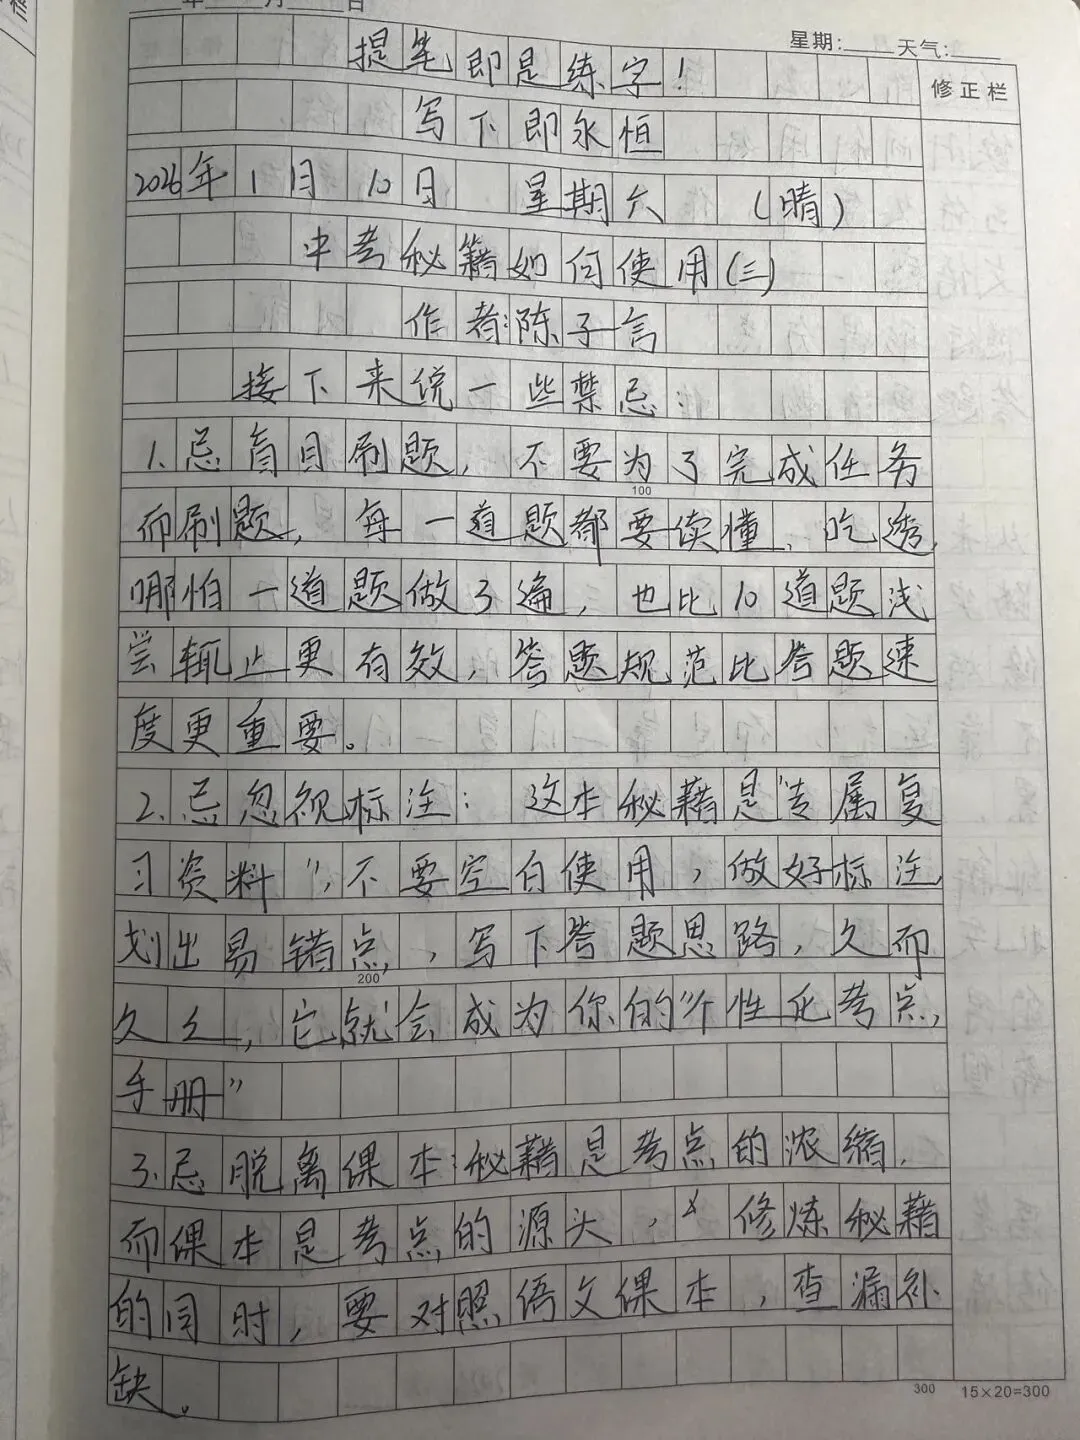 年 月 日
星期: 天气:
修正栏
提笔即是练字!
写下即永恒
2026年1月10日 星期六 (晴)
中考秘籍如何使用(三)
作者:陈子言
接下来说一些禁忌:
1.忌盲目刷题,不要为了完成任务
100
而刷题,每一道题都要读懂、吃透,
哪怕一道题做3遍,也比10道题浅
尝辄止更有效,答题规范比答题速
度更重要。
2.忌忽视标注:这本秘籍是“专属复
习资料”,不要空白使用,做好标注,
划出易错点,写下答题思路,久而
200
久之,它就会成为你的“个性化考点
手册”
3.忌脱离课本:秘籍是考点的浓缩,
而课本是考点的源头,修炼秘籍
的同时,要对照语文课本,查漏补
缺。
300 15×20=300